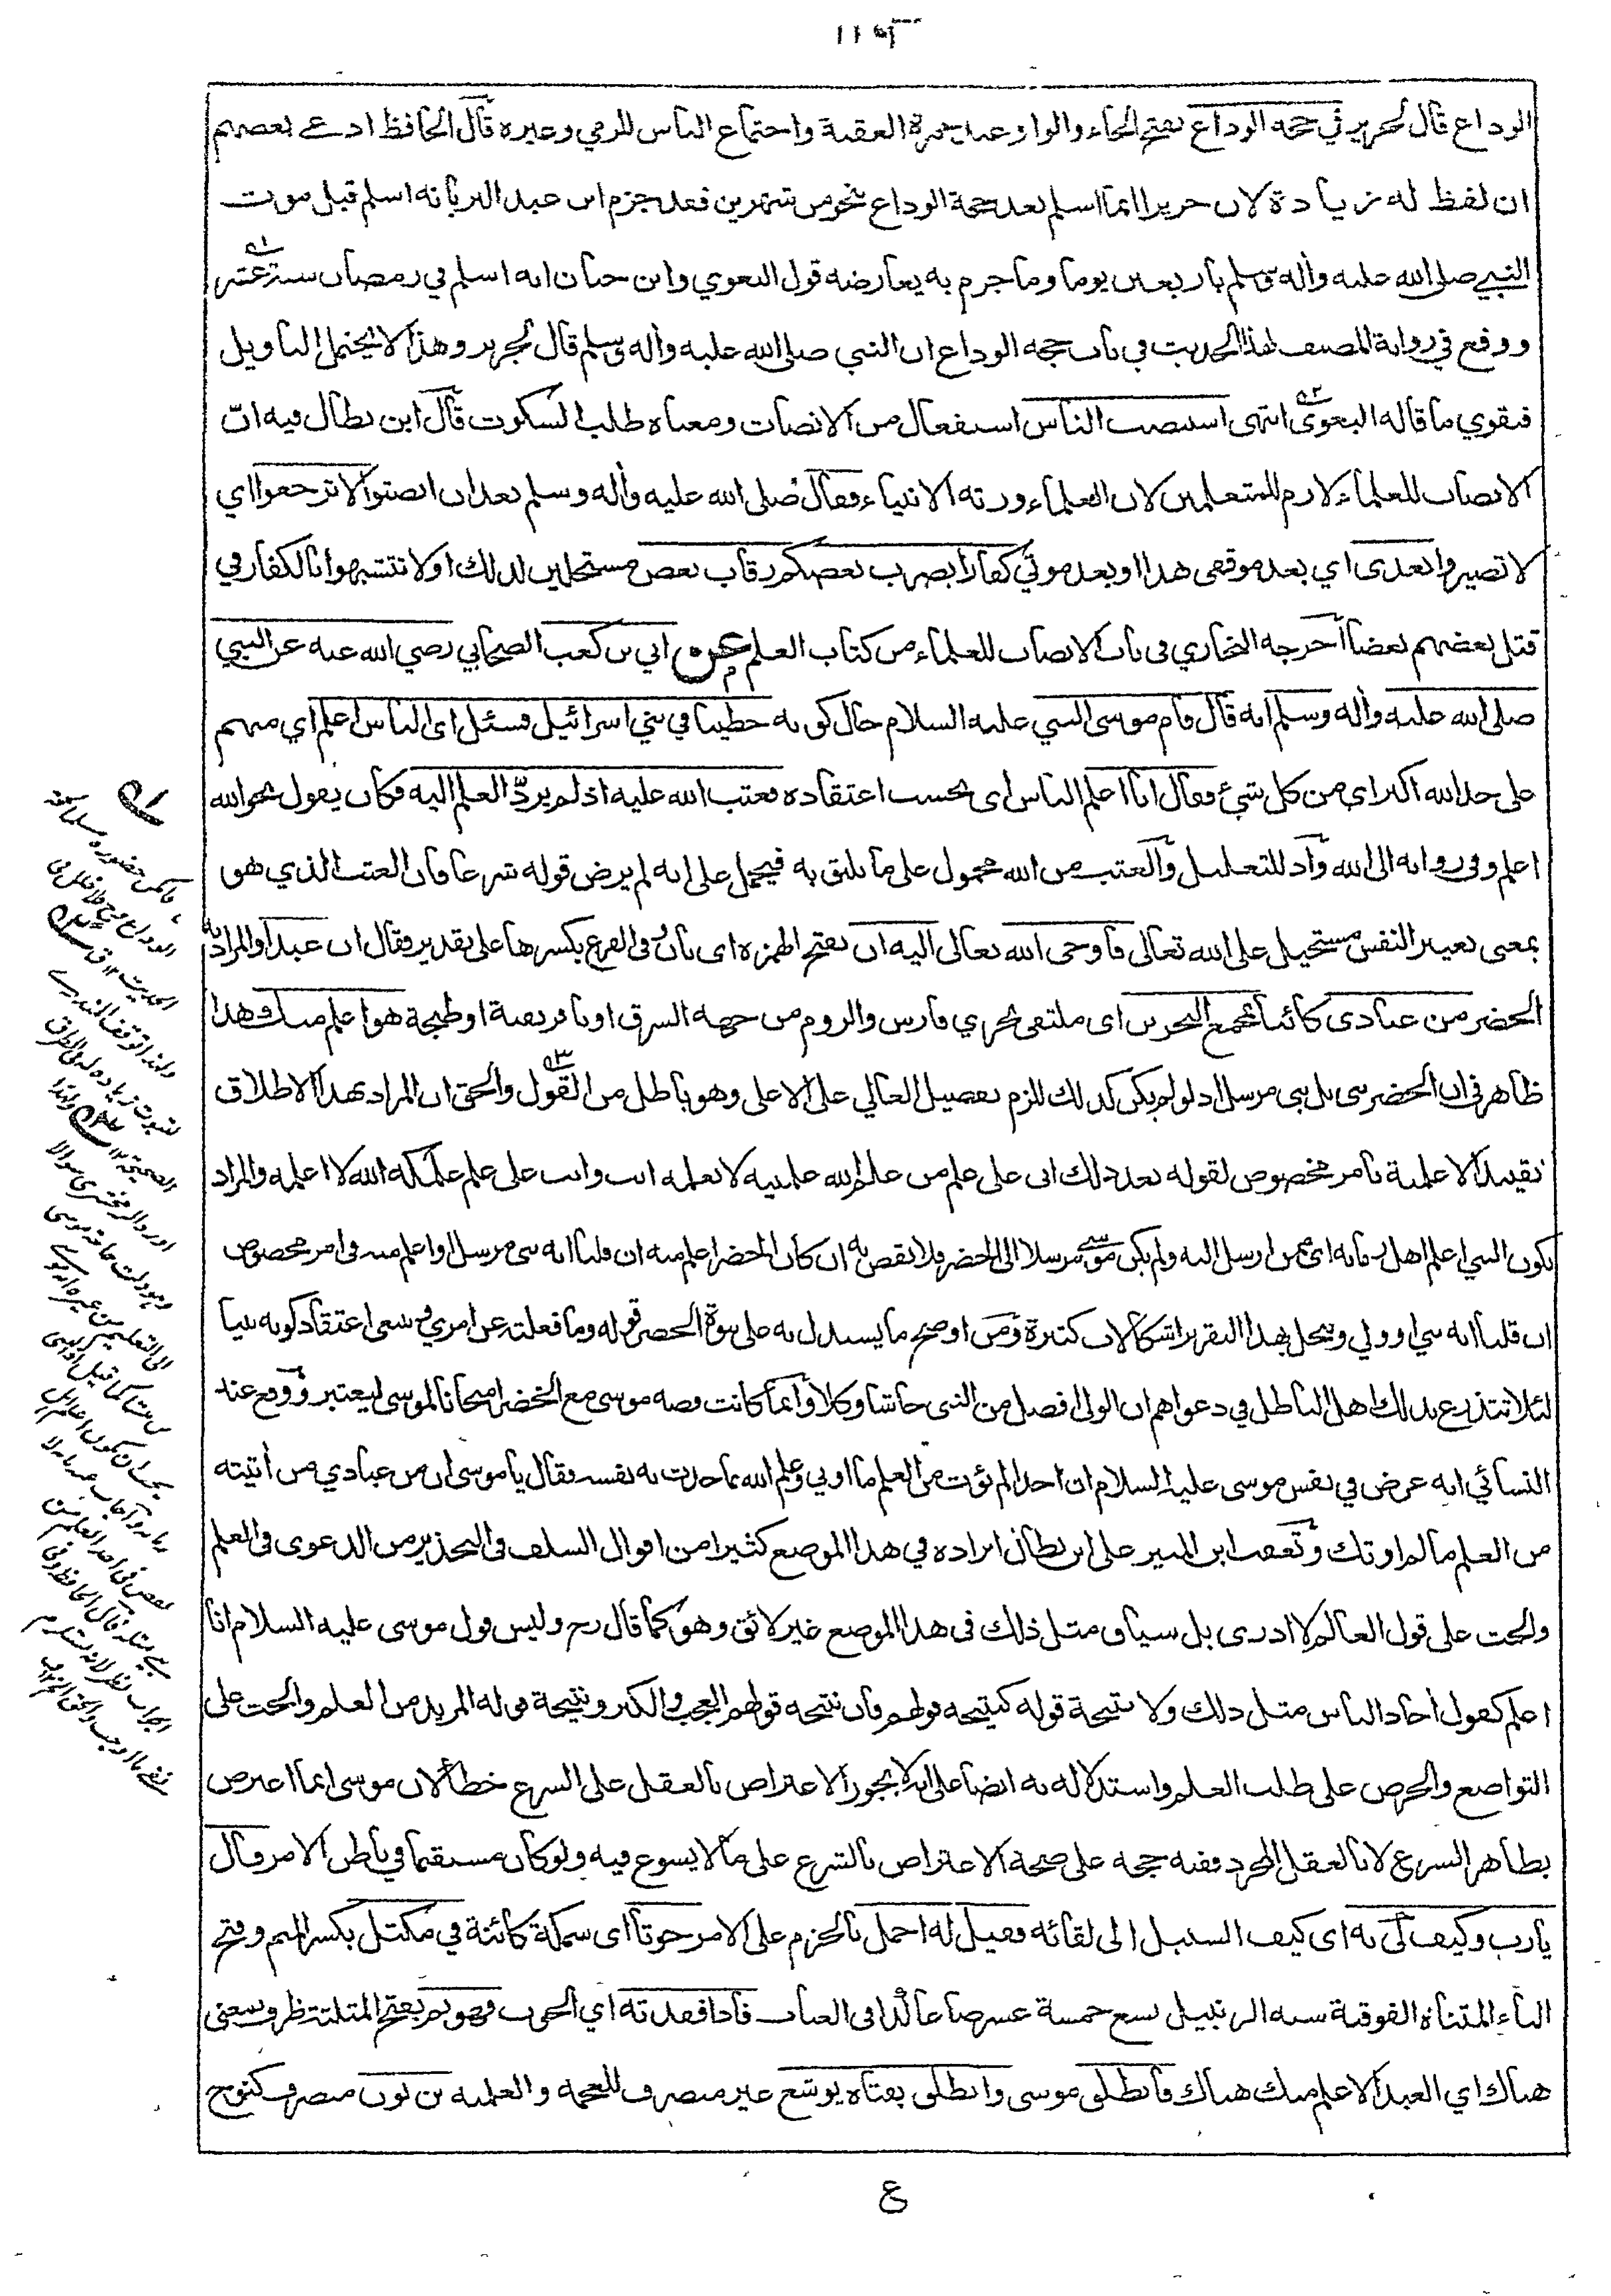 الوداع قال لجرير في حجة الوداع بفتح الحاء والواو عند جمرة العقبة واجتماع الناس للرمي وغيره قال الحافظ ادعى بعضهم
ان لفظ له زيادة لان جريرا انما اسلم بعد حجة الوداع بنحو من شهرين فقد جزم ابن عبد البر بانه اسلم قبل موت
النبي صلى الله عليه وأله وسلم باربعين يوما وما جزم به يعارضه قول البغوي وابن حبان انه اسلم في رمضان سنة عشر
ووقع في رواية المصنف لهذا الحديث في باب حجة الوداع ان النبي صلى الله عليه وأله وسلم قال لجرير وهذا لا يحتمل التاويل
فيقوي ما قاله البغوى انتهى استنصت الناس استفعال من الانصات ومعناه طلب السكوت قال ابن بطال فيه ان
الانصات للعلماء لازم للمتعلمين لان العلماء ورثة الانبياء فقال صلى الله عليه وأله وسلم بعد ان انصتوا لا ترجعوا اي
لا تصيروا بعدى اي بعد موقفى هذا او بعد موتي كفارا يضرب بعضكم رقاب بعض مستحلين لذلك او لا تتشبهوا بالكفار في
قتل بعضهم بعضا أخرجه البخاري في باب الانصات للعلماء من كتاب العلم عن ابي بن كعب الصحابي رضي الله عنه عن النبي
صلى الله عليه وأله وسلم انه قال قام موسى النبي عليه السلام حال كونه خطيبا في بني اسرائيل فسئل اى الناس اعلم اي منهم
على حد الله اكبر اي من كل شيئ فقال انا اعلم الناس اى بحسب اعتقاده فعتب الله عليه اذ لم يردّ العلم اليه فكان يقول نحو الله
اعلم وفي رواية الى الله واذ للتعليل والعتب من الله محمول على ما يليق به فيحمل على انه لم يرض قوله شرعا فان العتب الذي هو
بمعنى تغير النفس مستحيل على الله تعالى فاوحى الله تعالى اليه ان بفتح الهمزة اى بان وفي الفرع بكسرها على تقدير فقال ان عبدا والمراد به
الخضر من عبادى كائنا بمجمع البحرين اى ملتقى بحري فارس والروم من جهة الشرق او بافريقية او طنجة هو اعلم منك وهذا
ظاهر في ان الخضر نبي بل نبي مرسل اذ لو لم يكن كذلك للزم تفضيل العالي على الاعلى وهو باطل من القول والحق ان المراد بهذا الاطلاق
تقييد الاعلمية بامر مخصوص لقوله بعد ذلك انى على علم من علم الله علمنيه لا تعلمه انت وانت على علم علمكه الله لا اعلمه والمراد
بكون النبي اعلم اهل زمانه اى ممن ارسل اليه ولم يكن موسى مرسلا الى الخضر فلا نقص به ان كان الخضر اعلم منه ان قلنا انه نبي مرسل او اعلم منه في امر مخصوص
ان قلنا انه نبي او ولي وينحل بهذا التقرير اشكالات كثيرة ومن اوضح ما يستدل به على نبوة الخضر قوله وما فعلته عن امري وينبغى اعتقاد كونه نبيا
لئلا يتذرع بذلك اهل الباطل في دعواهم ان الولى افضل من النبي حاشا وكلا وانما كانت قصة موسى مع الخضر امتحانا لموسى ليعتبر ووقع عند
النسائي انه عرض في نفس موسى عليه السلام ان احدا لم يؤت من العلم ما اوتي وعلم الله بما حدثت به نفسه فقال يا موسى ان من عبادي من أتيته
من العلم ما لم اوتك وتعقب ابن المنير على ابن بطال ايراده في هذا الموضع كثيرا من اقوال السلف في التحذير من الدعوى في العلم
والحث على قول العالم لا ادرى بل سياق مثل ذلك في هذا الموضع غير لائق وهو كما قال رح وليس قول موسى عليه السلام انا
اعلم كقول أحاد الناس مثل ذلك ولا نتيجة قوله كنتيجة قولهم فان نتيجة قولهم العجب والكبر ونتيجة قوله المزيد من العلم والحث على
التواضع والحرص على طلب العلم واستدلاله به ايضا على انه لا يجوز الاعتراض بالعقل على الشرع خطأ لان موسى انما اعترض
بظاهر الشرع لا بالعقل المجرد ففيه حجة على صحة الاعتراض بالشرع على ما لا يسوغ فيه ولو كان مستقيما في باطن الامر وقال
يارب وكيف لى به اى كيف السبيل الى لقائه فقيل له احمل بالجزم على الامر حوتا اى سمكة كائنة في مكتل بكسر الميم وفتح
التاء المثناة الفوقية شبه الزنبيل يسع خمسة عشر صاعا كذا في العباب فاذا فقدته اي الحوت فهو ثم بفتح المثلثة ظرف بمعنى
هناك اي العبد الاعلم منك هناك فانطلق موسى وانطلق بفتاه يوشع غير منصرف للعجمة والعلمية بن نون منصرف كنوح
ع